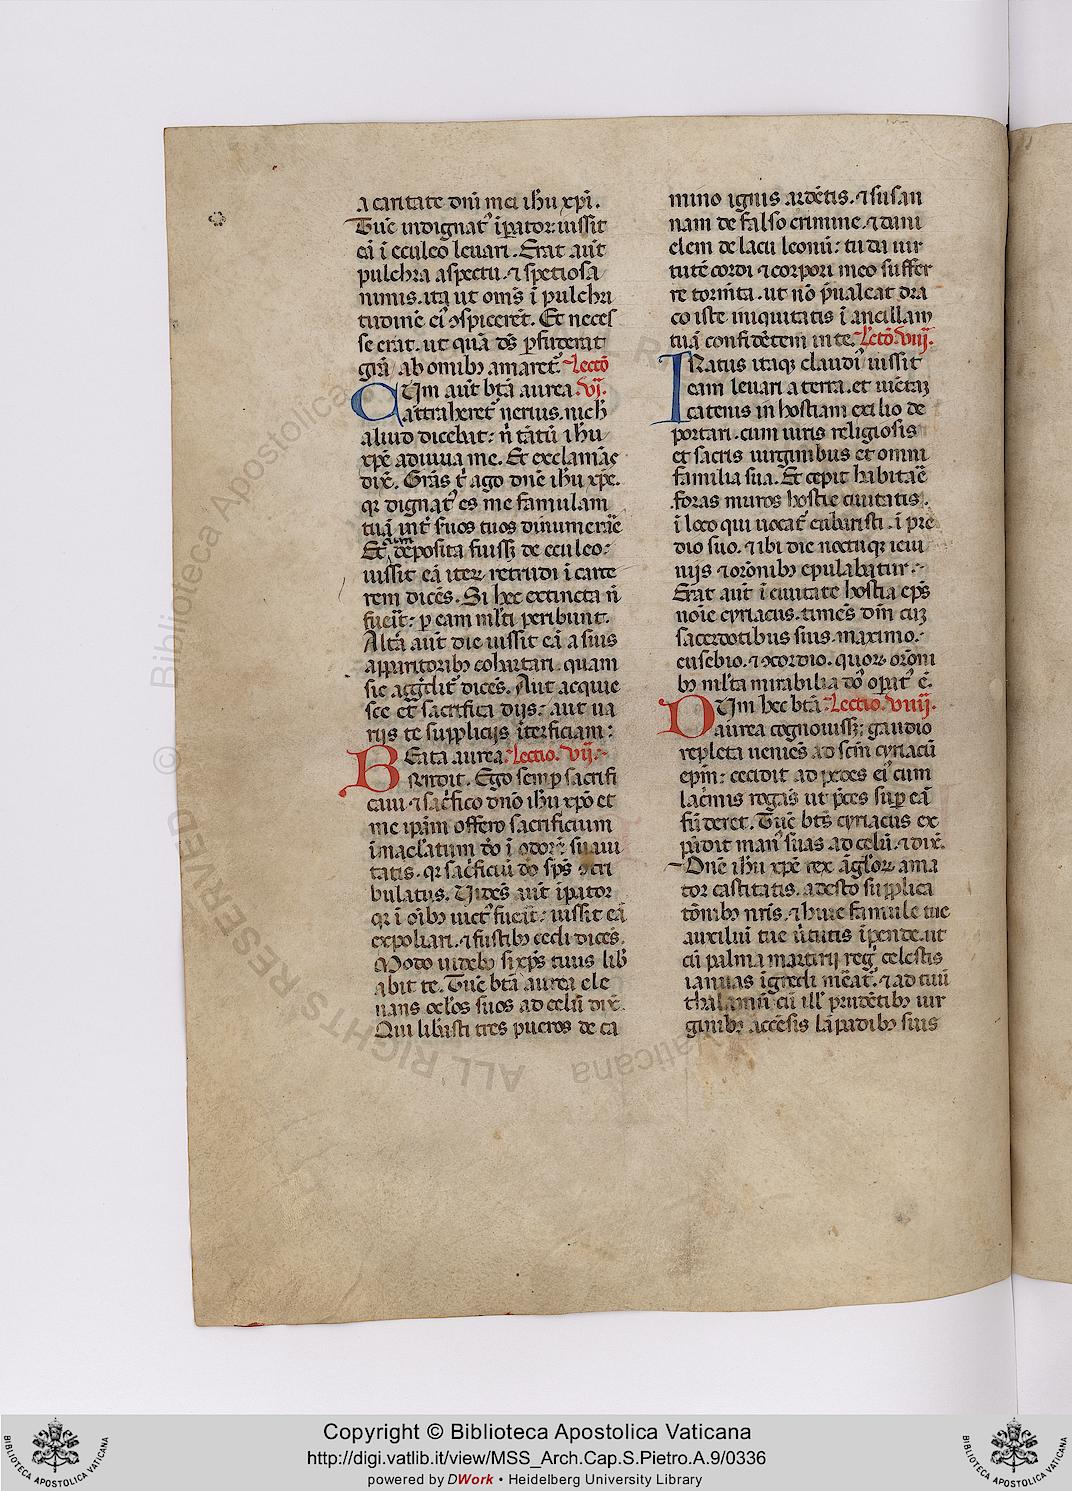 a caritate dn̄i mei ih̄u xp̄i.
Tūc indignat᷒ īpator: iussit
eā ī eculeo leuari. Erat aūt
pulchra aspectu. ⁊ spetiosa
nimis. ita ut om̄s ī pulchri
tudine ei᷒ ꝯspicerēt. Et neces
se erat. ut quā dš ꝑfuderat
gr̄a ab omībꝫ amaret᷒. Lectō
CUm aūt btā aurea vj.
attraheret᷒ neruis. nich̄
aliud dicebat: n̄ tātū ih̄u
xp̄e adiuua me. Et exclamās
dix̄. Grās t̄ ago dn̄e ih̄u xp̄e.
qr dignat᷒ es me famulam
tuā int̄ suos tuos dinumerāe
Et cum deposita fuiss; de eculeo:
iussit eā iterꝝ retrudi ī carce
rem dicēs. Si hec extincta n̄
fuerit: ꝑ eam ml̄ti peribunt.
Alt̄a aūt die iussit eā a suis
apparitoribꝫ cohartari. quam
sic dicēs. Aut acquie
sce et sacrifica dijs: aut ua
rijs te supplicijs īterficiam:
BEata aurea Lectio. vij.
Ridit. Ego semꝑ sacrifi
caui ⁊ sac̄fico dn̄o ih̄u xp̄o et
me ip̄am offero sacrificium
īmacl̄atum dō ī odorē suaui
tatis. qr sac̄ficiū dō sp̄s ꝯtri
bulatus. Uidēs aūt īpator
qr ī oībꝫ uict᷒ fuerit: iussit eā
expoliari. ⁊ fustibꝫ cedi dicēs.
Modo uidebo si xp̄s tuus lib̄
abit te. Tūc btā aurea ele
uans oc̄los suos ad celū dix̄.
Qui lib̄asti tres pueros de ca
mino ignis ardētis. ⁊ susan
nam de falso crimine. ⁊ dani
elem de lacu leonū: tu da uir
tutē cordi ⁊ corpori meo suffer
re torm̄ta. ut nō p̄ualeat dra
co iste iniquitatis ī ancillam
tuā confidētem in te. Lectō. viij.
IRatus itaqꝫ claudi᷒ iussit
eam leuari a terra. et uīctaꝫ
catenis in hostiam exilio de
portari. cum uiris religiosis
et sacris uirginibus et omni
familia sua. Et cepit habitāe
foras muros hostie ciuitatis.
ī loco qui uocat᷒ eubaristi. ī pre
dio suo. ⁊ ibi die noctuqꝫ ieiu
nijs ⁊ orōnibꝫ epulabat̄ur.
Erat aūt ī ciuitate hostia ep̄s
noīe cyriacus. timēs dm̄ cuꝫ
sacerdotibus suis. maximo.
eusebio. ⁊ ꝯcordio. quorꝝ orōni
bꝫ ml̄ta mirabilia dō opat᷒ ē.
DUm hec btā Lectio. viiij.
aurea cognouiss; gaudio
repleta ueniēs ad scm̄ cyriacū
ep̄m: cecidit ad pedes ei᷒ cum
lac̄mis rogās ut p̄ces suꝑ eā
fūderet. Tūc bts̄ cyriacus ex
pādit man᷒ suas ad celū. ⁊ dix̄.
Dn̄e ih̄u xp̄e rex āgl̄orꝝ. ama
tor castitatis. adesto supplica
tōnibꝫ nr̄is. ⁊ huic famule tue
auxiluī tue ūtutis īpende. ut
cū palma martirij reg᷒ celestis
ianuas īgredi meat᷒. ⁊ ad tuū
thalamū cū ill᷒ prudētibꝫ uir
ginibꝫ accēsis lāpadibꝫ suis
© Biblioteca Apostolica Vaticana
ALL RIGHTS RESERVED
Copyright © Biblioteca Apostolica Vaticana
http://digi.vatlib.it/view/MSS_Arch.Cap.S.Pietro.A.9/0336
powered by DWork • Heidelberg University Library
BIBLIOTECA APOSTOLICA VATICANA
BIBLIOTECA APOSTOLICA VATICANA